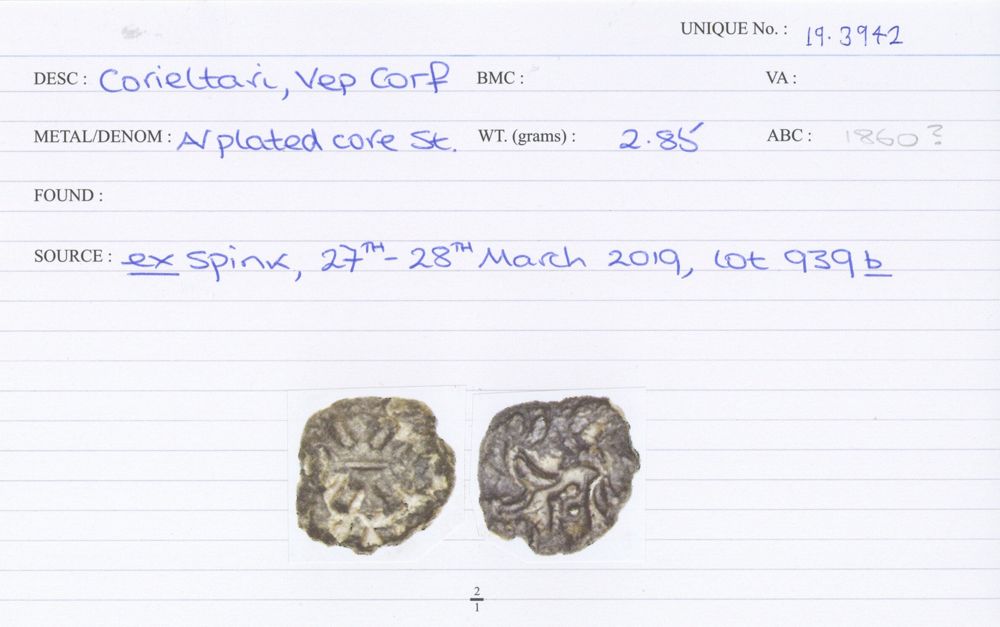 UNIQUE No. : 19.3942
DESC : Corieltavi, Vep Corf BMC : VA :
METAL/DENOM : N plated core St. WT. (grams) : 2.85 ABC : 1860?
FOUND :
SOURCE : ex Spink, 27TH - 28TH March 2019, lot 939b
2
1